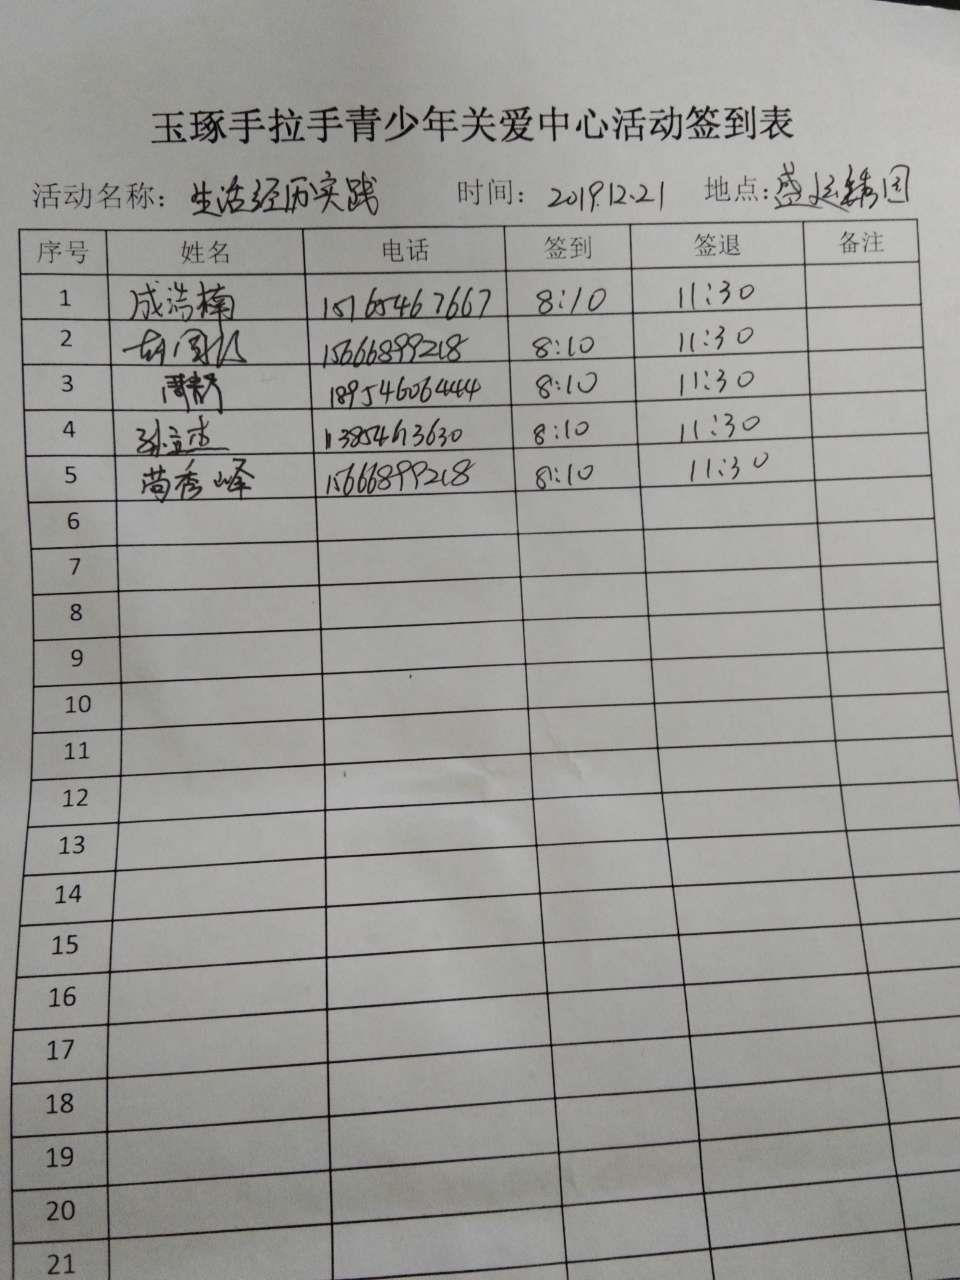 玉琢手拉手青少年关爱中心活动签到表
活动名称：生活经历实践 时间：2019.12.21 地点：盛远锦园
序号 姓名 电话 签到 签退 备注
1 成浩楠 15765467667 8:10 11:30
2 15666899218 8:10 11:30
3 18954606444 8:10 11:30
4 孙立杰 13854613630 8:10 11:30
5 苗秀峰 15666899218 8:10 11:30
6
7
8
9
10
11
12
13
14
15
16
17
18
19
20
21